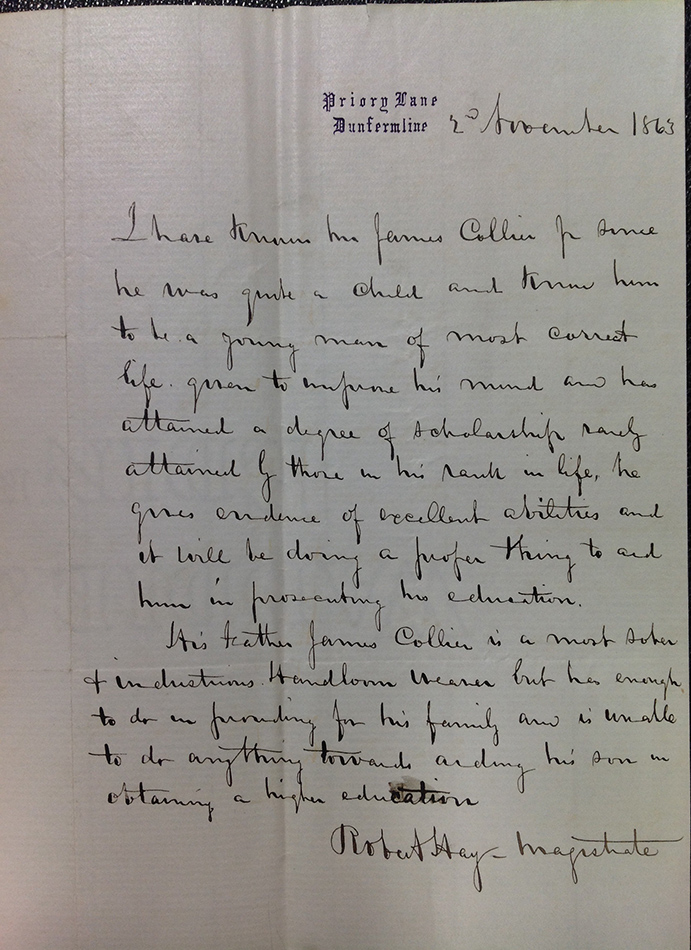 Priory Lane
Dunfermline
2d November 1863
I have known Mr James Collier Jr since
he was quite a child and know him
to be a young man of most correct
life. given to improve his mind and has
attained a degree of scholarship rarely
attained by those in his rank in life, he
gives evidence of excellent abilities and
it will be doing a proper thing to aid
him in prosecuting his education.
His Father James Collier is a most sober
& industrious Handloom weaver but has enough
to do in providing for his family and is unable
to do anything towards aiding his son in
obtaining a higher education
Robert Hay - Magistrate